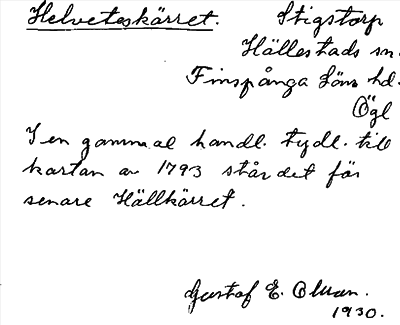 Helveteskärret. Stigstorp
Hällestads sn.
Finspånga läns hd.
Ögl
I en gammal handl. tydl. till
kartan av 1793 står det för
senare Hällkärret.
Gustaf E. Olsson.
1930.